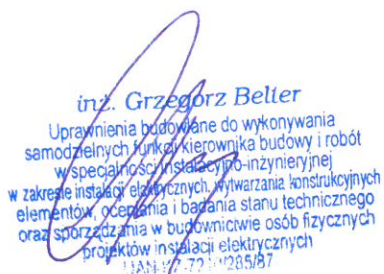 inż. Grzegorz Belter
Uprawnienia budowlane do wykonywania
samodzielnych funkcji kierownika budowy i robót
w specjalności instalacyjno-inżynieryjnej
w zakresie instalacji elektrycznych, wytwarzania konstrukcyjnych
elementów, oceniania i badania stanu technicznego
oraz sporządzania w budownictwie osób fizycznych
projektów instalacji elektrycznych
285/87